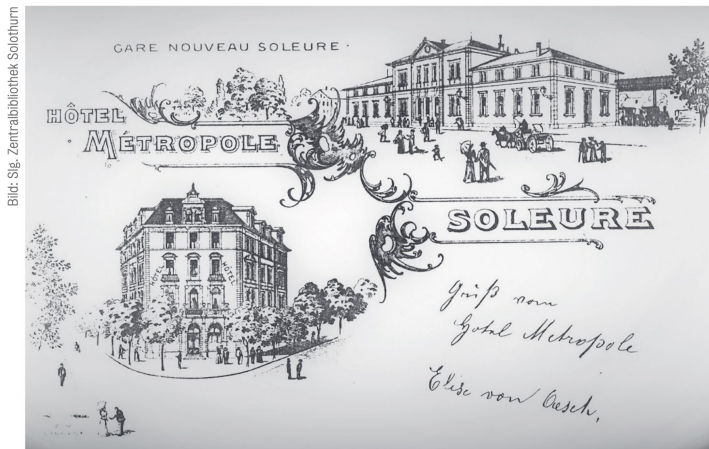 Bild: Slg. Zentralbibliothek Solothurn
GARE NOUVEAU SOLEURE.
HÔTEL
MÉTROPOLE
SOLEURE
Gruß vom
Hotel Metropole
Elise von Oesch,